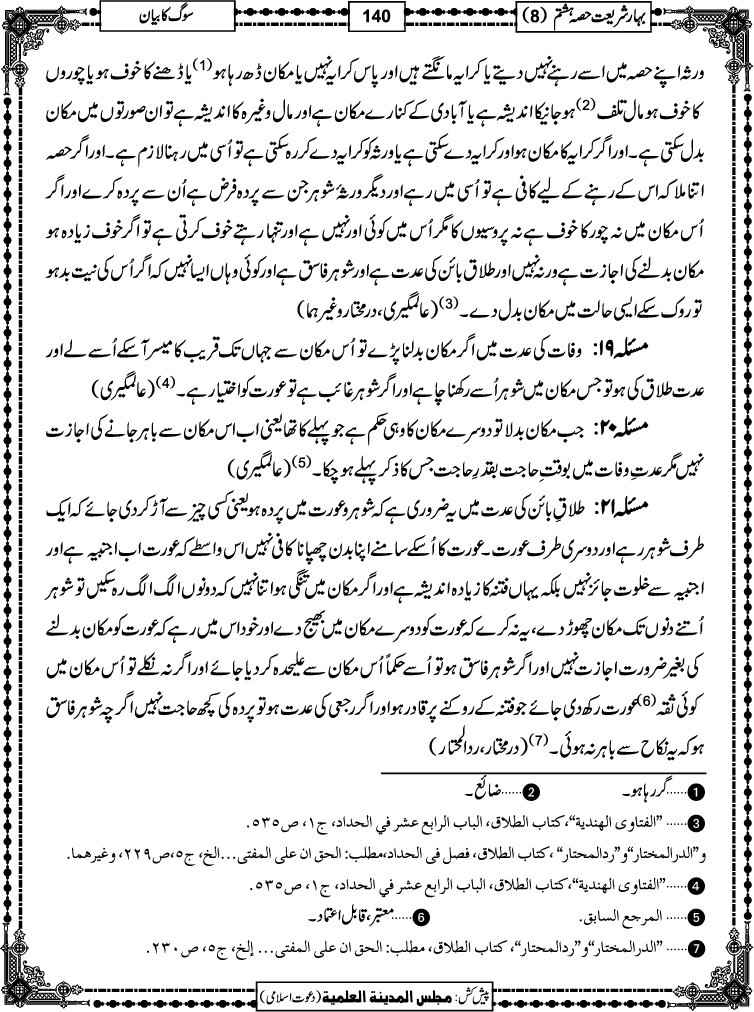 بہارِ شریعت حصہ ہشتم (8)
140
سوگ کا بیان
ورثہ اپنے حصہ میں اسے رہنے نہیں دیتے یا کرایہ مانگتے ہیں اور پاس کرایہ نہیں یا مکان ڈھ رہا ہو (1) یا ڈھنے کا خوف ہو یا چوروں
کا خوف ہو مال تلف (2) ہو جانیکا اندیشہ ہے یا آبادی کے کنارے مکان ہے اور مال وغیرہ کا اندیشہ ہے تو ان صورتوں میں مکان
بدل سکتی ہے۔ اور اگر کرایہ کا مکان ہو اور کرایہ دے سکتی ہے یا ورثہ کو کرایہ دے کر رہ سکتی ہے تو اُسی میں رہنا لازم ہے۔ اور اگر حصہ
اتنا ملا کہ اس کے رہنے کے لیے کافی ہے تو اُسی میں رہے اور دیگر ورثۂ شوہر جن سے پردہ فرض ہے اُن سے پردہ کرے اور اگر
اُس مکان میں نہ چور کا خوف ہے نہ پروسیوں کا مگر اُس میں کوئی اور نہیں ہے اور تنہا رہتے خوف کرتی ہے تو اگر خوف زیادہ ہو
مکان بدلنے کی اجازت ہے ورنہ نہیں اور طلاق بائن کی عدت ہے اور شوہر فاسق ہے اور کوئی وہاں ایسا نہیں کہ اگر اُس کی نیت بد ہو
تو روک سکے ایسی حالت میں مکان بدل دے۔ (3) (عالمگیری، درمختار وغیرہما)
مسئلہ ۱۹: وفات کی عدت میں اگر مکان بدلنا پڑے تو اُس مکان سے جہاں تک قریب کا میسر آسکے اُسے لے اور
عدت طلاق کی ہو تو جس مکان میں شوہر اُسے رکھنا چاہے اور اگر شوہر غائب ہے تو عورت کو اختیار ہے۔ (4) (عالمگیری)
مسئلہ ۲۰: جب مکان بدلا تو دوسرے مکان کا وہی حکم ہے جو پہلے کا تھا یعنی اب اس مکان سے باہر جانے کی اجازت
نہیں مگر عدتِ وفات میں بوقتِ حاجت بقدرِ حاجت جس کا ذکر پہلے ہو چکا۔ (5) (عالمگیری)
مسئلہ ۲۱: طلاقِ بائن کی عدت میں یہ ضروری ہے کہ شوہر و عورت میں پردہ ہو یعنی کسی چیز سے آڑ کر دی جائے کہ ایک
طرف شوہر رہے اور دوسری طرف عورت۔ عورت کا اُسکے سامنے اپنا بدن چھپانا کافی نہیں اس واسطے کہ عورت اب اجنبیہ ہے اور
اجنبیہ سے خلوت جائز نہیں بلکہ یہاں فتنہ کا زیادہ اندیشہ ہے اور اگر مکان میں تنگی ہو اتنا نہیں کہ دونوں الگ الگ رہ سکیں تو شوہر
اُتنے دنوں تک مکان چھوڑ دے، یہ نہ کرے کہ عورت کو دوسرے مکان میں بھیج دے اور خود اس میں رہے کہ عورت کو مکان بدلنے
کی بغیر ضرورت اجازت نہیں اور اگر شوہر فاسق ہو تو اُسے حکماً اُس مکان سے علیحدہ کر دیا جائے اور اگر نہ نکلے تو اُس مکان میں
کوئی ثقہ (6) عورت رکھ دی جائے جو فتنہ کے روکنے پر قادر ہو اور اگر رجعی کی عدت ہو تو پردہ کی کچھ حاجت نہیں اگرچہ شوہر فاسق
ہو کہ یہ نکاح سے باہر نہ ہوئی۔ (7) (درمختار، ردالمحتار)
1 ......گر رہا ہو۔ 2 ......ضائع۔
3 ...... "الفتاوى الهندية"، كتاب الطلاق، الباب الرابع عشر في الحداد، ج١، ص٥٣٥.
و"الدرالمختار"و"ردالمحتار"، كتاب الطلاق، فصل في الحداد،مطلب: الحق ان على المفتى...الخ، ج٥،ص٢٢٩، وغيرهما.
4 ......"الفتاوى الهندية"،كتاب الطلاق، الباب الرابع عشر في الحداد، ج١، ص٥٣٥.
5 ...... المرجع السابق. 6 ......معتبر، قابل اعتماد۔
7 ...... "الدرالمختار"و"ردالمحتار"، كتاب الطلاق، مطلب: الحق ان على المفتى... إلخ، ج٥، ص٢٣٠.
پیش کش: مجلس المدينة العلمية (دعوت اسلامی)